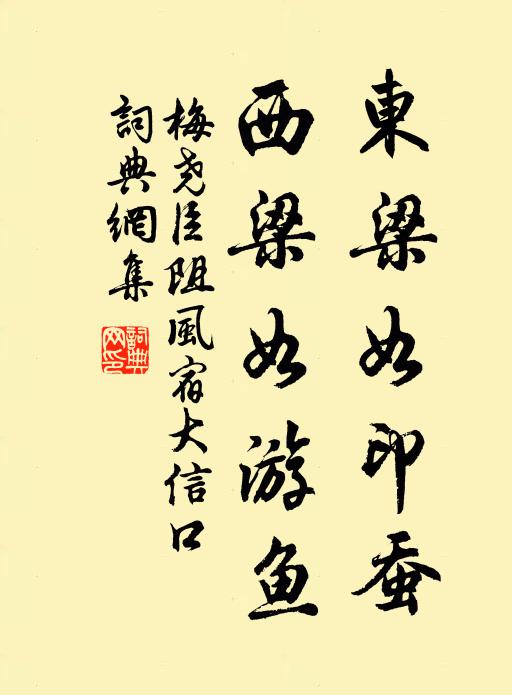 東梁如印蚕
西梁如游鱼
梅尧臣阻風宿大信口
詞典網集
詞典網印